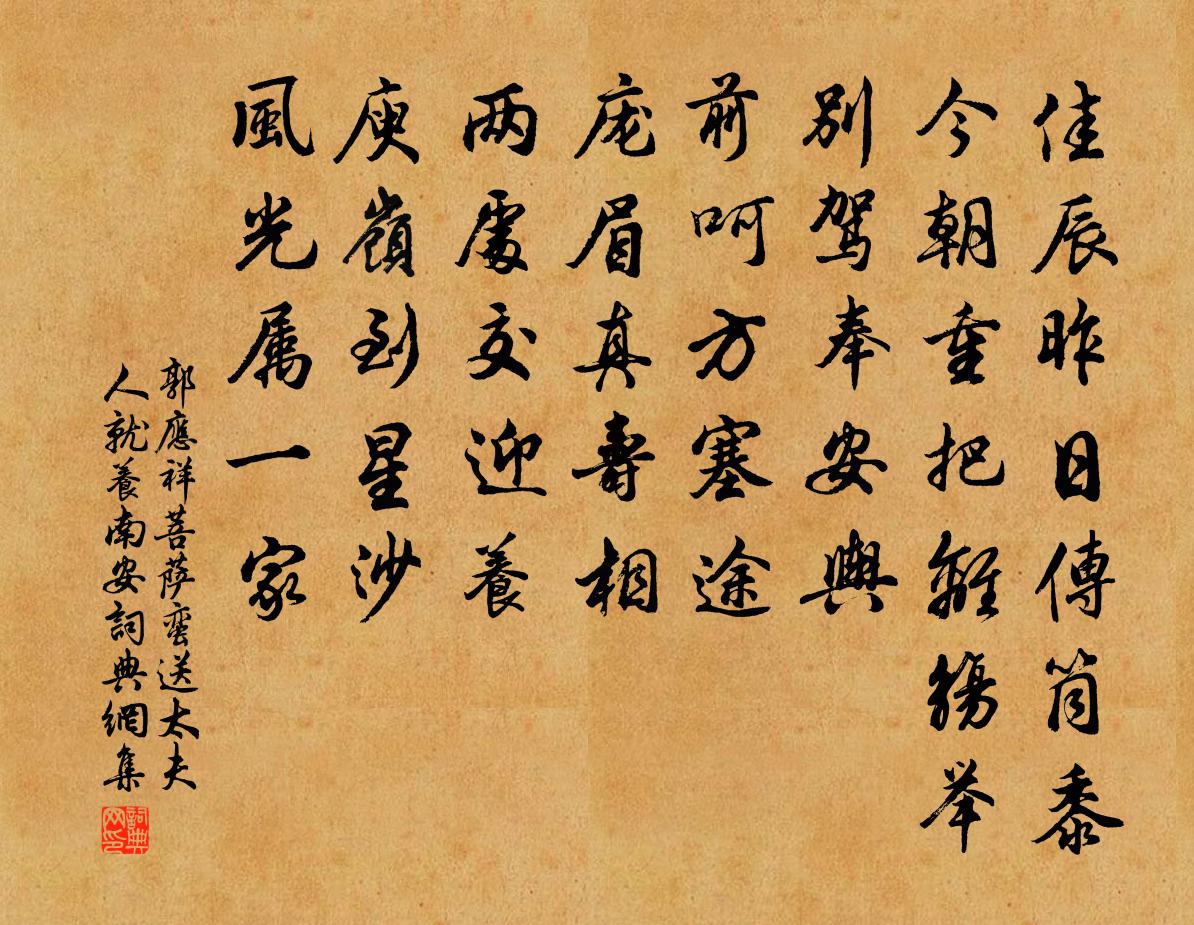 佳辰昨日傳筒黍
今朝重把離觴举
別駕奉安輿
前呵方塞途
庞眉真壽相
两處交迎養
庾嶺到星沙
風光属一家
郭應祥菩萨蛮送太夫
人就養南安詞典網集
詞典
网印